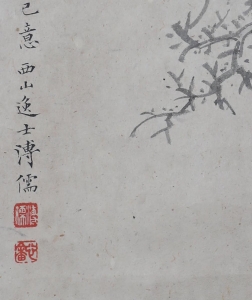 己意西山逸士溥儒